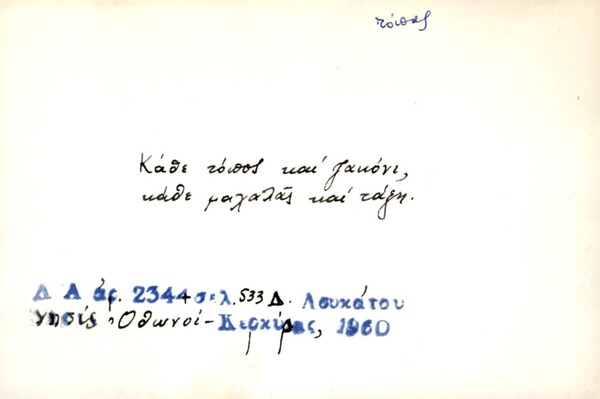 τόπος
Κάθε τόπος καί ζακόνι,
κάθε μαχαλᾶς καί τάξη.
Λ Α ἀρ. 2344 σελ. 533 Δ. Λουκάτου
νησίς Ὀθωνοί - Κερκύρας, 1960